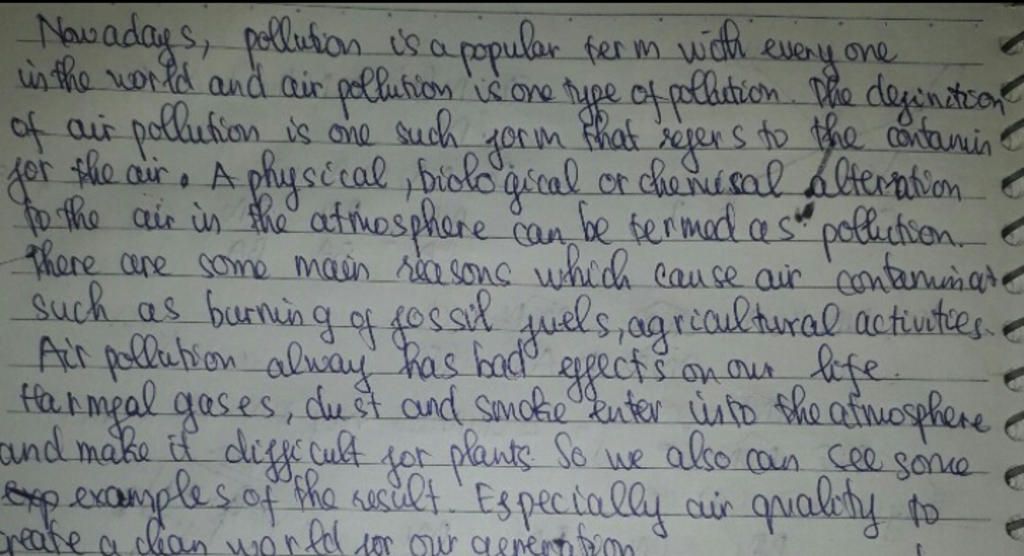 Nowadays, pollution is a popular term with every one
in the world and air pollution is one type of pollution. The definition
of air pollution is one such form that refers to the contamin
for the air. A physical, biological or chemical alternation
to the air in the atmosphere can be termed as pollution.
There are some main reasons which cause air contaminat
such as burning of fossil fuels, agricultural activities.
Air pollution alway has bad effects on our life.
Harmful gases, dust and smoke enter into the atmosphere
and make it difficult for plants. So we also can see some
examples of the result. Especially air quality to
create a clean world for our generation